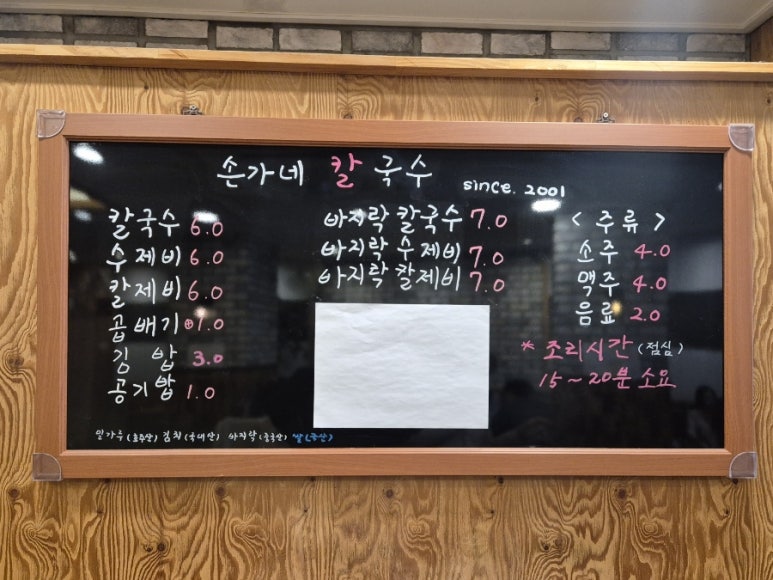 손가네 칼국수 since. 2001
칼국수 6.0
수제비 6.0
칼제비 6.0
곱배기 +1.0
김밥 3.0
공기밥 1.0
바지락 칼국수 7.0
바지락 수제비 7.0
바지락 칼제비 7.0
< 주류 >
소주 4.0
맥주 4.0
음료 2.0
* 조리시간 (점심)
15~20분 소요
밀가루 (호주산) 김치 (국내산) 바지락 (중국산) 쌀